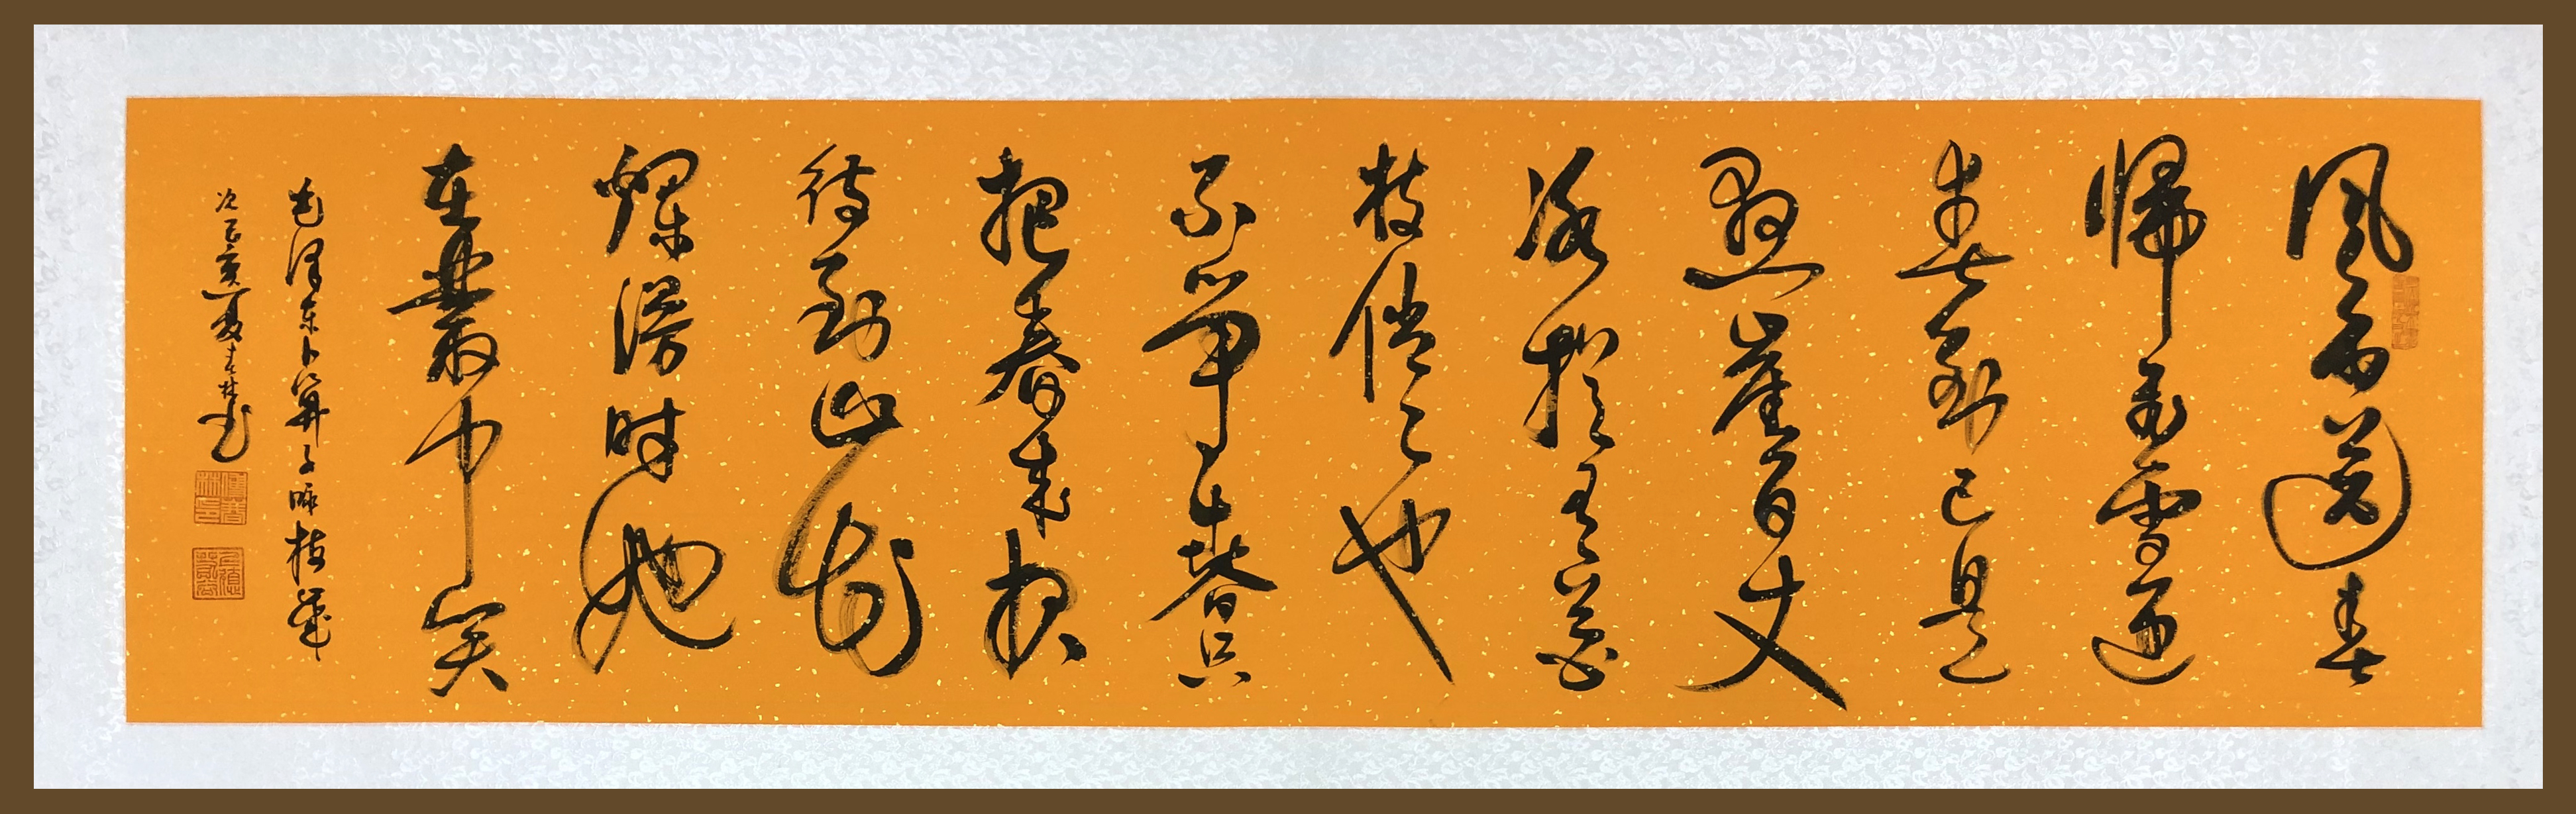 風雨送春
歸飛雪迎
春到已是
懸崖百丈
冰犹有花
枝俏々也
不争春只
把春来报
待到山花
爛漫时她
在叢中笑
毛泽东卜算子咏梅歲
次己亥夏春林书